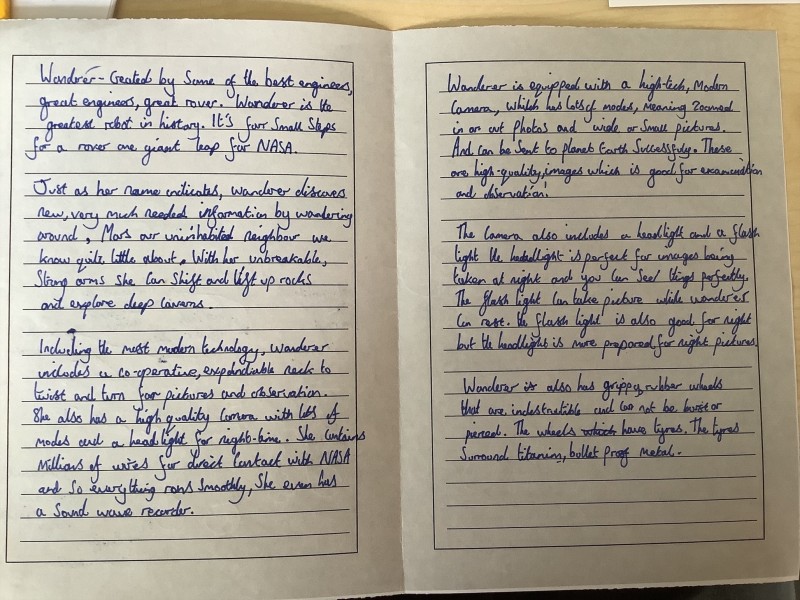 Wanderer - Created by some of the best engineers,
great engineers, great rover. Wanderer is the
greatest robot in history. It's four small steps
for a rover one giant leap for NASA.
Just as her name indicates, Wanderer discovers
new, very much needed information by wandering
around, Mars our uninhabited neighbour we
know quite little about, With her unbreakable,
Strong arms she can shift and lift up rocks
and explore deep caverns.
Including the most modern technology, Wanderer
includes a co-operative, expandiable neck to
twist and turn for pictures and observation.
She also has a high quality camera with lots of
modes and a headlight for night-time. She contains
Millions of wires for direct contact with NASA
and so everything runs smoothly, She even has
a sound wave recorder.
Wanderer is equipped with a high-tech, Modern
Camera, which has lots of modes, meaning zoomed
in or out photos and wide or small pictures.
And can be sent to planet Earth successfuly. These
are high-quality, images which is good for examination
and observation!
The Camera also includes a headlight and a flash
light the headlight is perfect for images being
taken at night and you can see things perfectly.
The flash light can take picture while wanderer
can rest. the flash light is also good for night
but the headlight is more prepared for night pictures
Wanderer is also has grippy, rubber wheels
that are indestructible and can not be burst or
pierced. The wheels which have tyres. The tyres
Surround titanium, bullet proof metal.